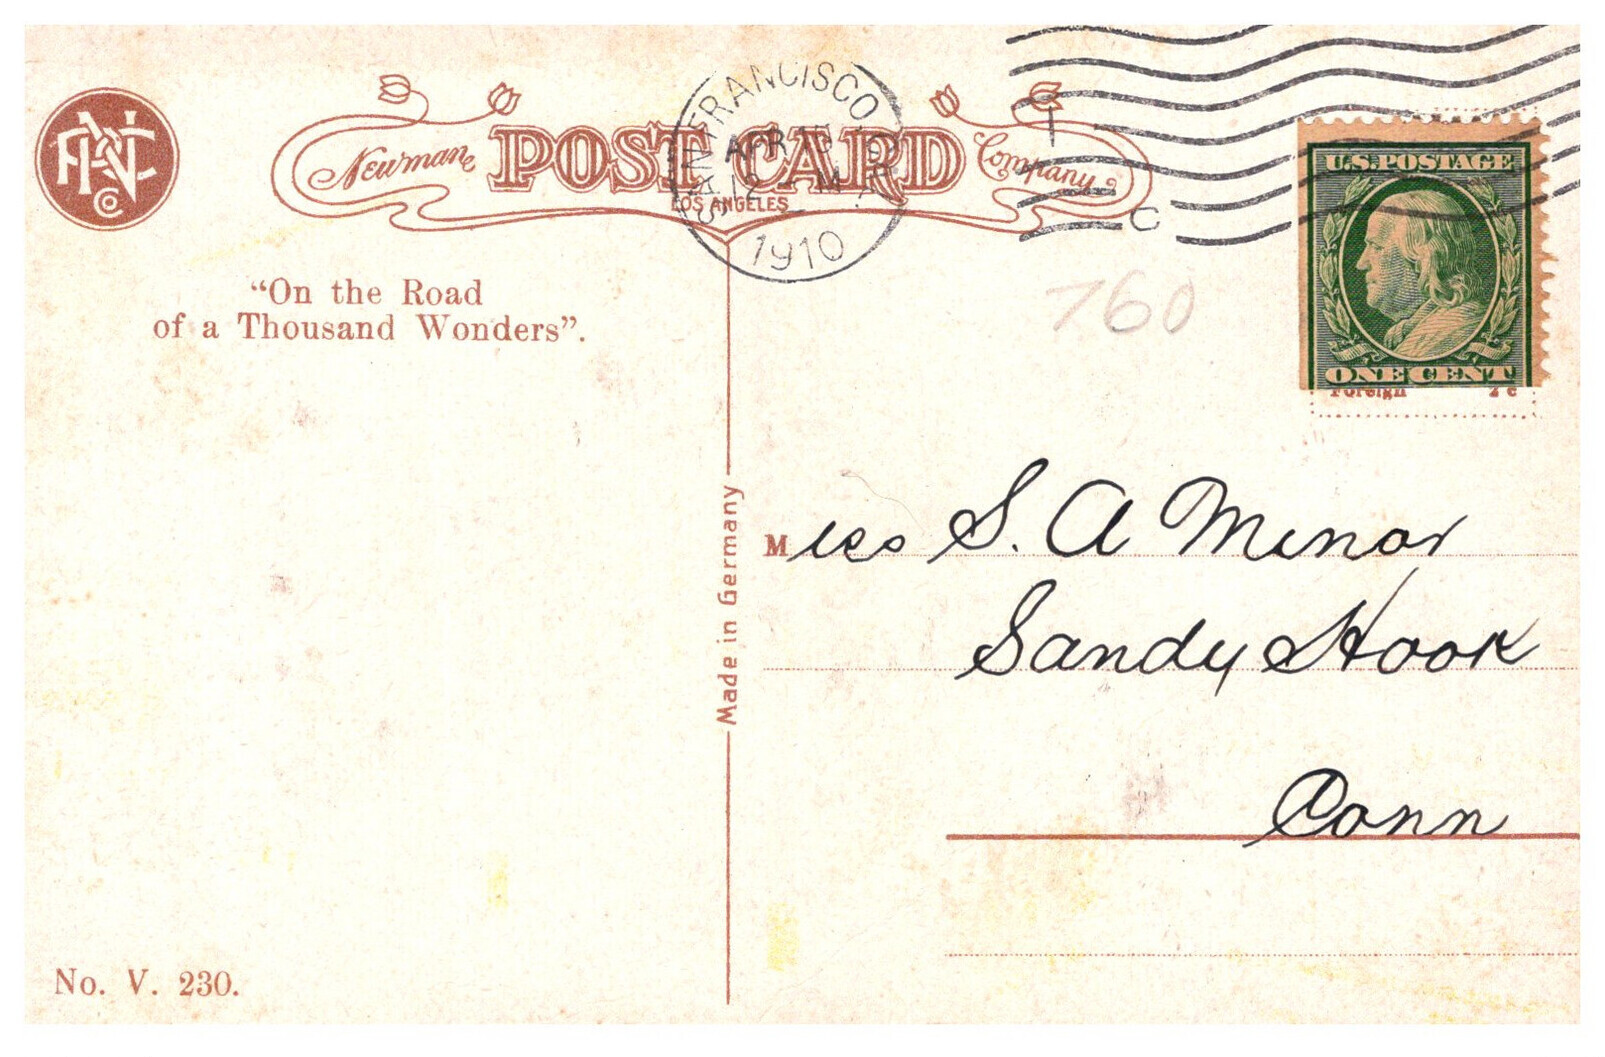 PNC
Co
Newman POST CARD Company
LOS ANGELES
SAN FRANCISCO, CAL.
APR 15
12 - M
1910
T
C
U.S. POSTAGE
ONE CENT
Foreign 2c
"On the Road
of a Thousand Wonders".
760
Made in Germany
Miss S. A Minor
Sandy Hook
Conn
No. V. 230.